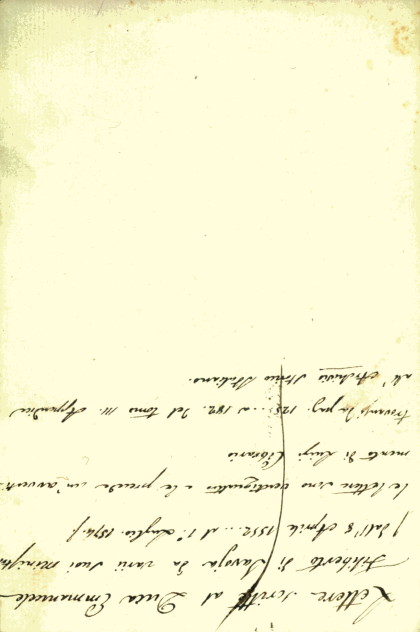 Lettere scritte al Duca Emmanuele
Filiberto di Savoja da varii suoi
(dall' 8 Aprile 1552... al 1° Luglio
le lettere sono e le precede un' avverti-
mento di Luigi Cibrario
trovansi da pag. a 182. del tomo III. Appendice
all' Archivio Storico Italiano.